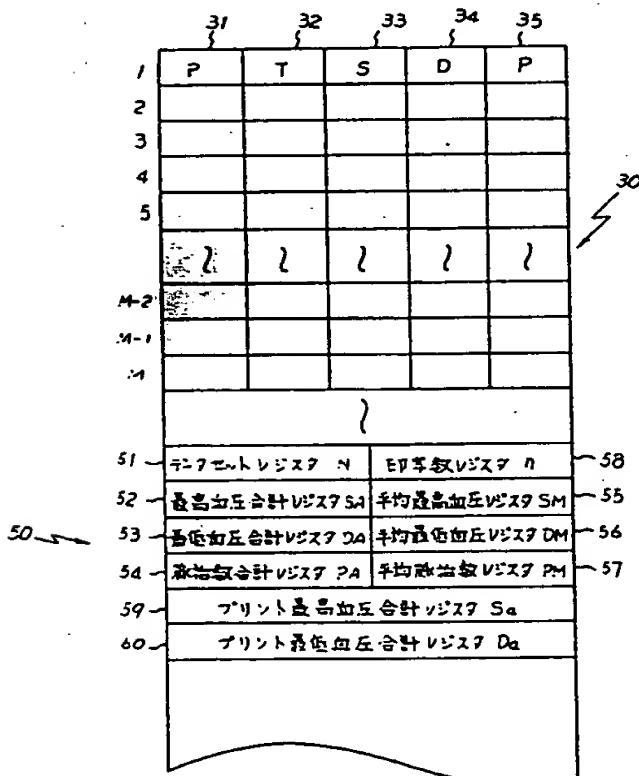 31 32 33 34 35
1 P T S D P
2
3
4
5
30
M-2
M-1
M
51 データセットレジスタ N 印字数レジスタ n 58
52 最高血圧合計レジスタ SA 平均最高血圧レジスタ SM 55
50
53 最低血圧合計レジスタ DA 平均最低血圧レジスタ DM 56
54 脈拍数合計レジスタ PA 平均脈拍数レジスタ PM 57
59 プリント最高血圧合計レジスタ Sa
60 プリント最低血圧合計レジスタ Da